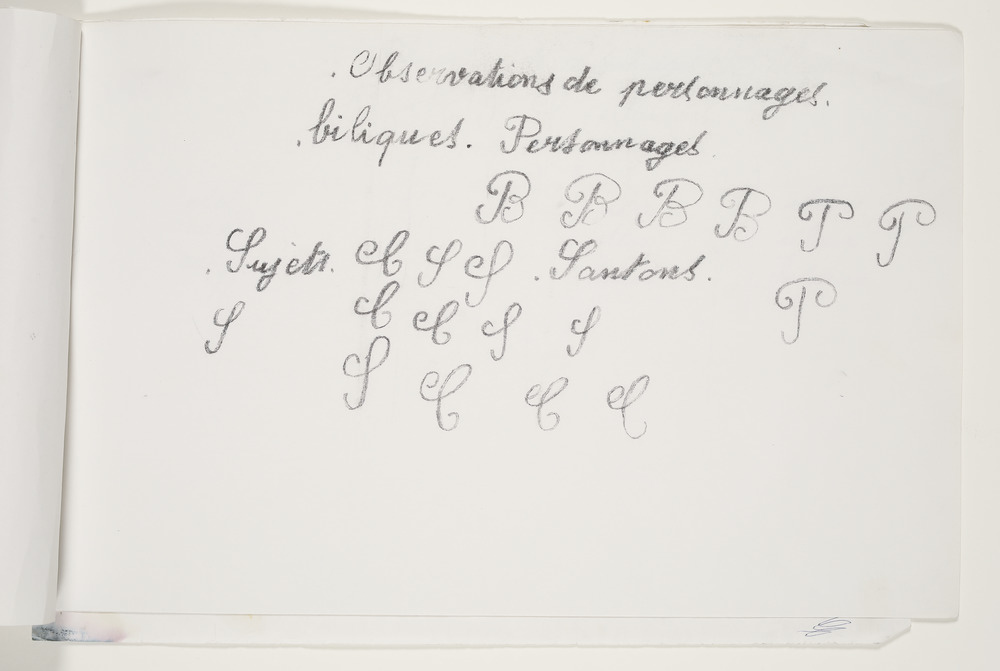 . Observations de personnages.
. biliques. Personnages
B B B B P P
. Sujets. C S S . Santons.
S C C S S P
S C C C